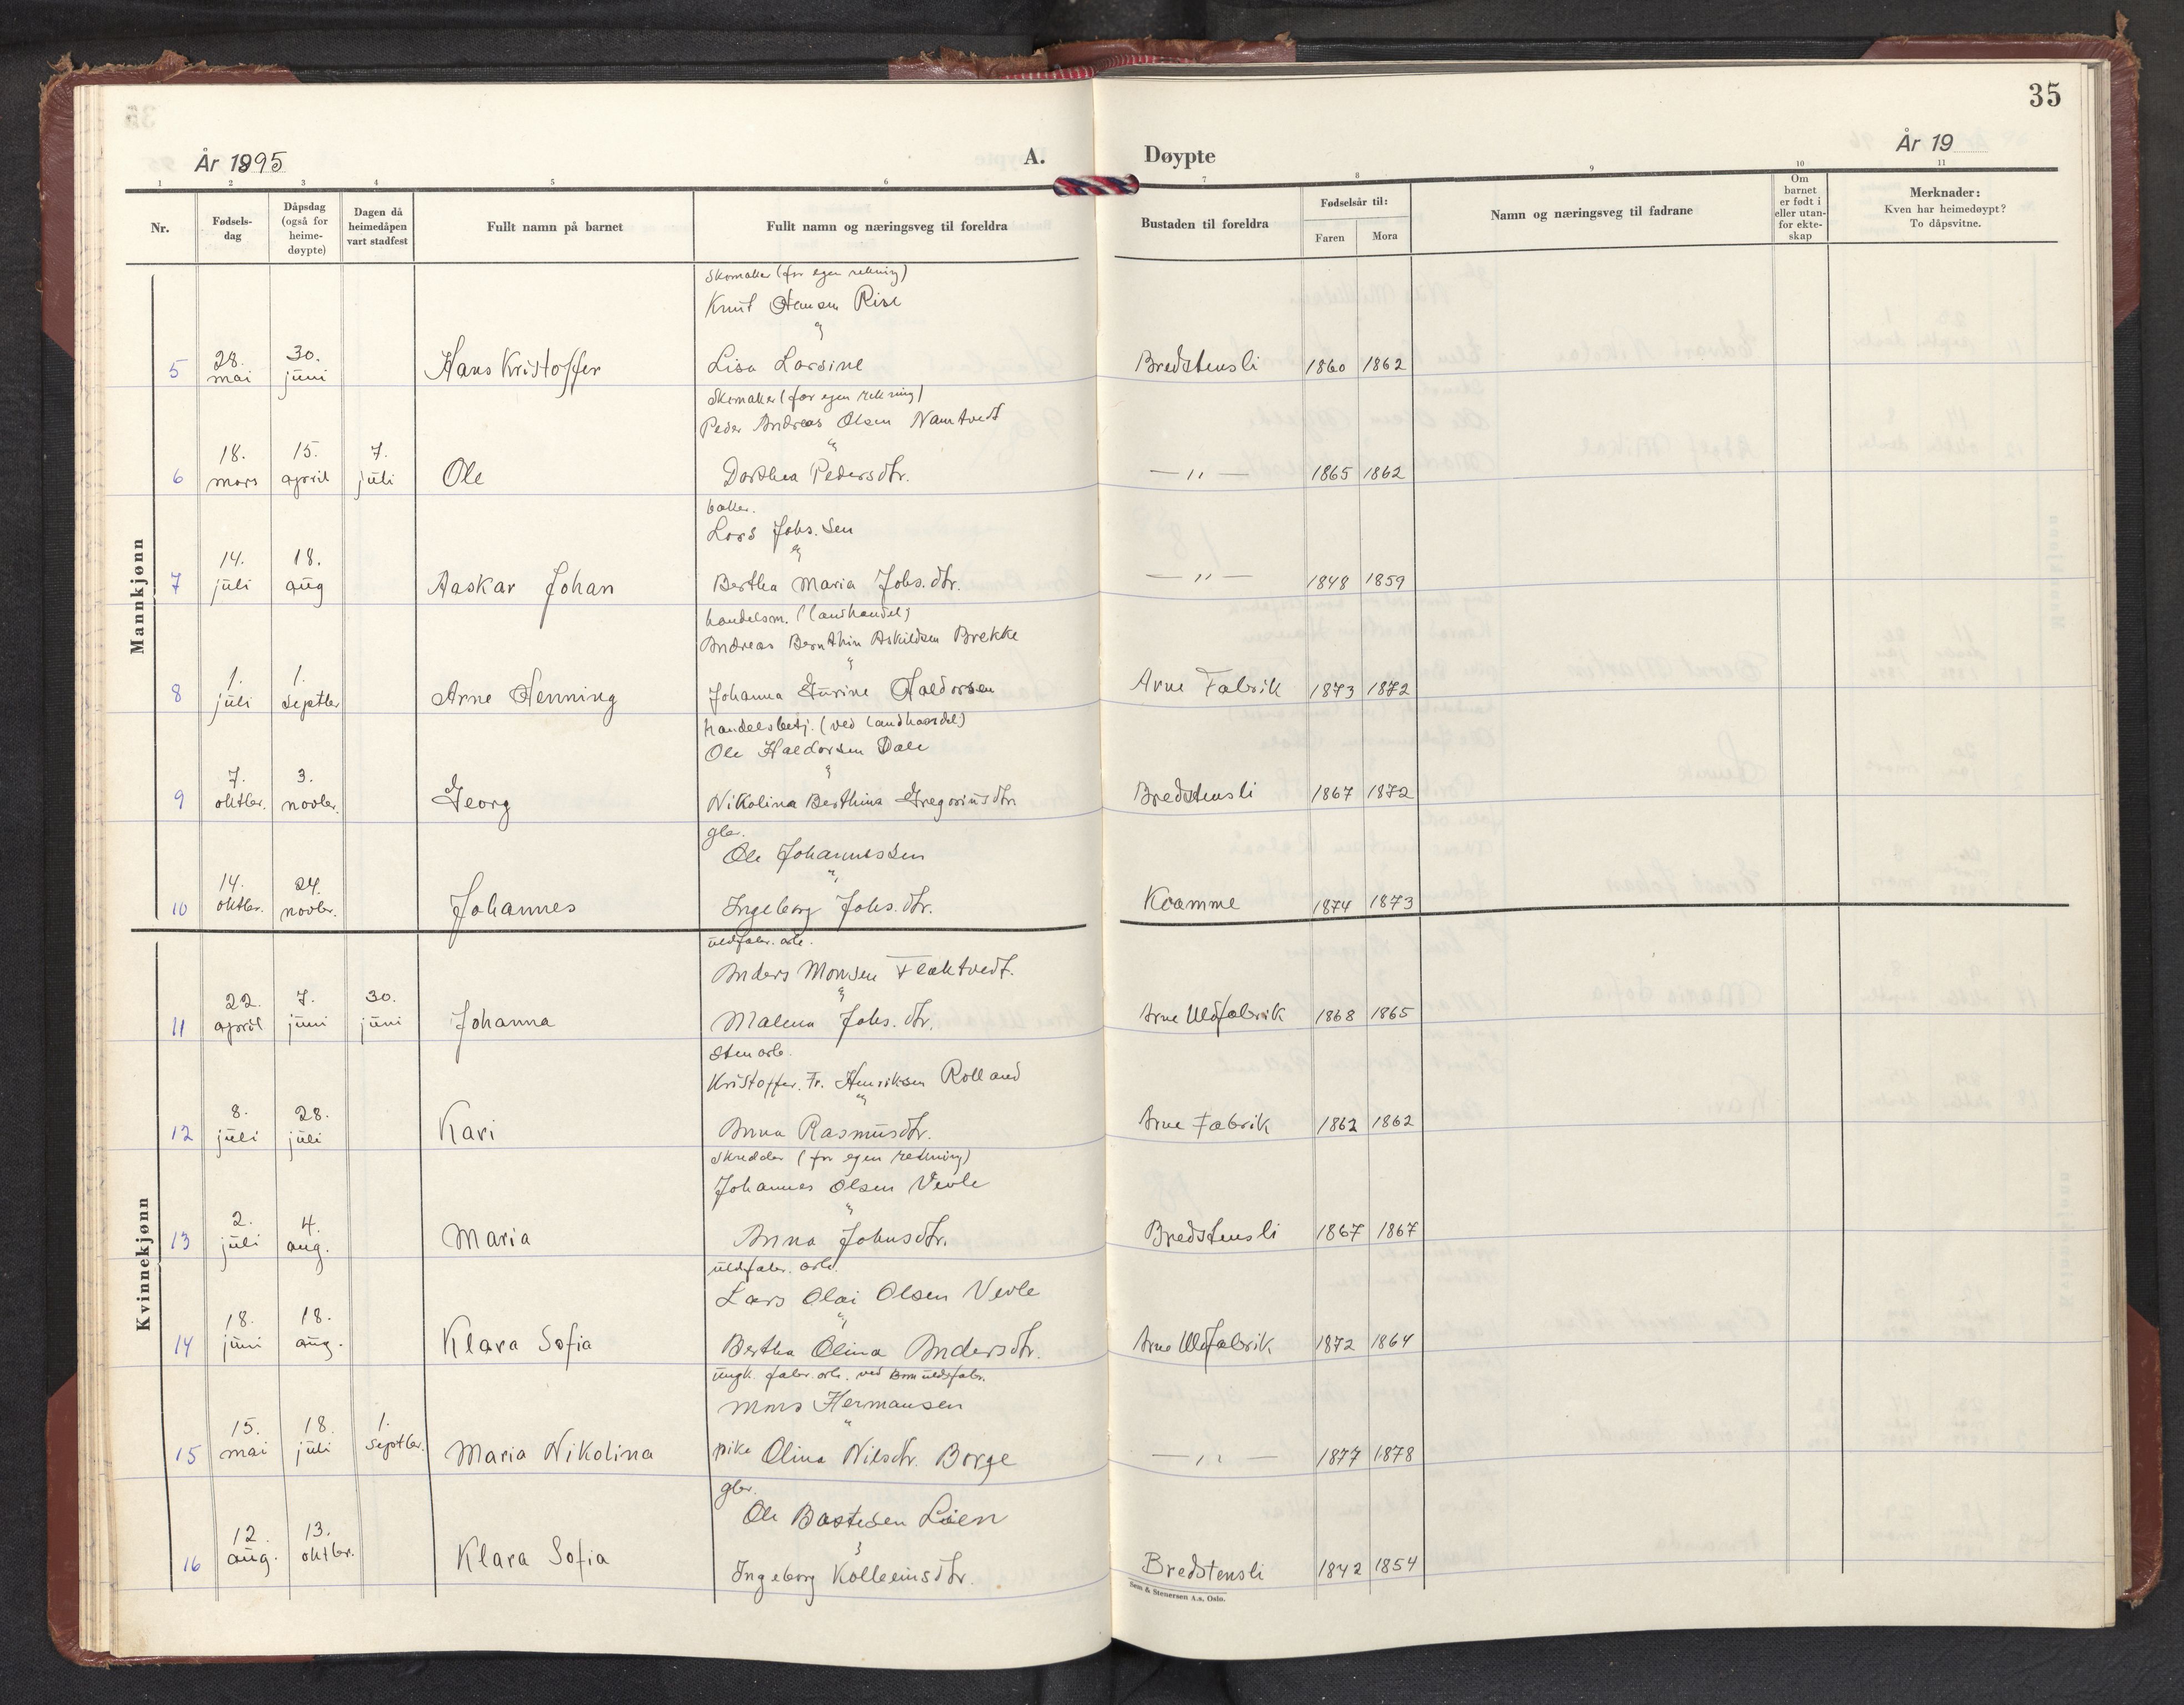 35
År 1895
A.
Døypte
År 19
1 2 3 4 5 6 7 8 9 10 11
Nr.
Fødsels-
dag
Dåpsdag
(også for
heime-
døypte)
Dagen då
heimedåpen
vart stadfest
Fullt namn på barnet
Fullt namn og næringsveg til foreldra
Bustaden til foreldra
Fødselsår til:
Faren Mora
Namn og næringsveg til fadrane
Om
barnet
er født i
eller utan-
for ekte-
skap
Merknader:
Kven har heimedøypt?
To dåpsvitne.
Mannkjønn
Skomaker (for egen rekning)
Knut Hansen Rise
&
5 28. mai 30. juni Hans Kristoffer Lisa Larsine Bredstensli 1860 1862
Skomaker (for egen rekning)
Peder Andreas Olsen Namtvedt
&
6 18. mars 15. april 7. juli Ole Dorthea Pedersdtr. — " — 1865 1862
baker.
Lars Johs.sen
&
7 14. juli 18. aug Aaskar Johan Bertha Maria Johs.dtr. — " — 1848 1859
handelsm. (landhandel)
Andreas Bernthin Askildsen Brekke
&
8 1. juli 1. septbr Arne Henning Johanna Gurine Haldorsen Arne Fabrik 1873 1872
handelsbetj. (ved landhandel)
Ole Haldorsen Dale
&
9 7. oktbr. 3. novbr. Georg Nikolina Berthina Gregoriusdtr Bredstensli 1867 1872
gbr.
Ole Johannessen
&
10 14. oktbr. 24. novbr. Johannes Ingeborg Johs.dtr. Kvamme 1874 1873
Kvinnekjønn
uldfabr. arb.
Anders Monsen Flaktvedt.
&
11 22. april 7. juni 30. juni Johanna Malena Johs.dtr. Arne Uldfabrik 1868 1865
Stenarb.
Kristoffer Fr. Henriksen Rolland
&
12 8. juli 28. juli Kari Anna Rasmusdtr. Arne Fabrik 1862 1862
Skredder (for egen rekning)
Johannes Olsen Vevle
&
13 2. juli 4. aug. Maria Anna Johnsdtr. Bredstensli 1867 1867
uldfabr. arb.
Lars Olai Olsen Vevle
&
14 18. juni 18. aug. Klara Sofia Bertha Olina Andersdtr. Arne Uldfabrik 1872 1864
ungk. fabr. arb. ved Bomuldsfabr.
Mons Hermansen
&
15 15. mai 18. juli 1. septbr. Maria Nikolina pike Olina Nilsdtr. Borge — " — 1877 1878
gbr.
Ole Bastesen Lien
&
16 12. aug. 13. oktbr. Klara Sofia Ingeborg Kolbeinsdtr. Bredstensli 1842 1854
Sem & Stenersen A.s. Oslo.